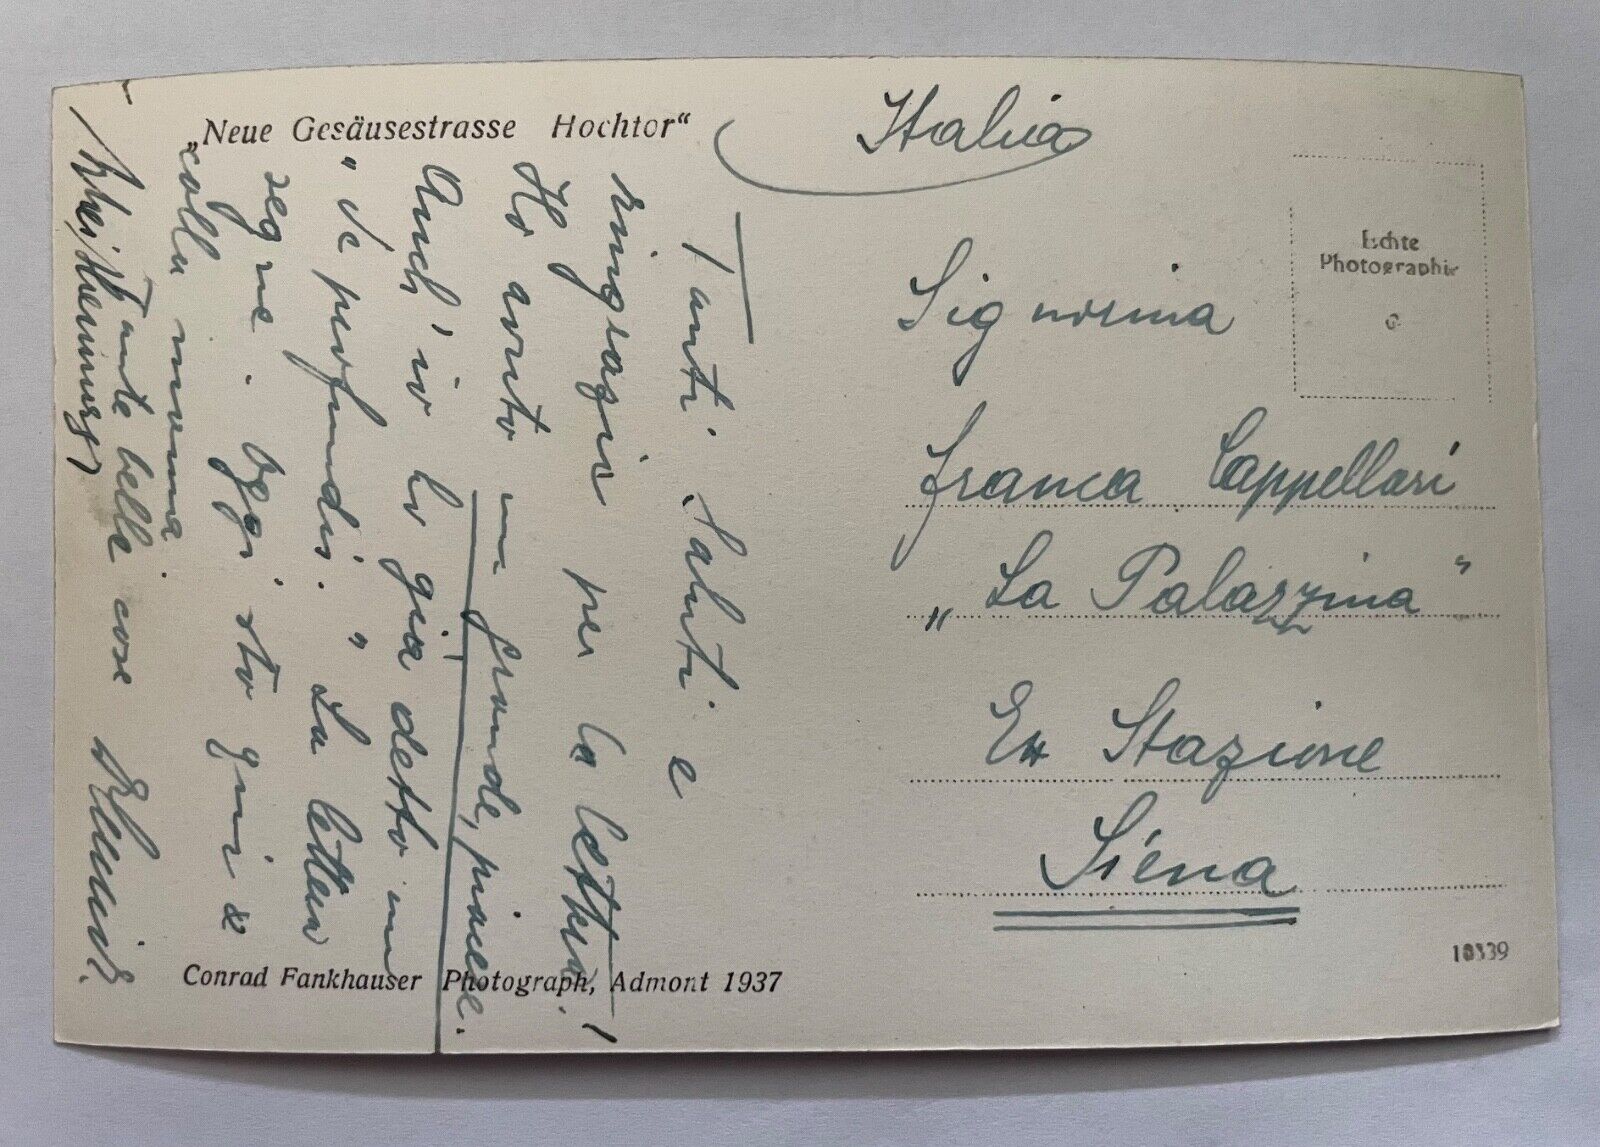 „Neue Gesäusestrasse Hochtor“
Italia
Echte
Photographie
Signorina
Franca Cappellari
„La Palazzina“
Ex Stazione
Siena
10339
Tanti saluti e
ringrazie per la lettera!
Ho avuto un grande piacere.
Anch' io ho già detto un
"de profundis." La lettera
segue. Oggi sto qui a
colla mamma.
Tante belle cose
Conrad Fankhauser Photograph, Admont 1937